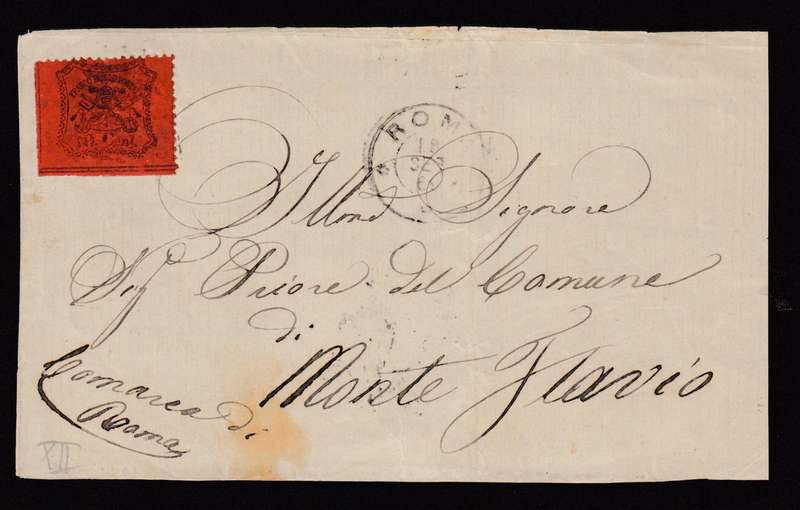 ROMA
18
SET
Illmo Signore
Sig. Priore del Comune
di
Monte Flavio
Comarca di
Roma
XII